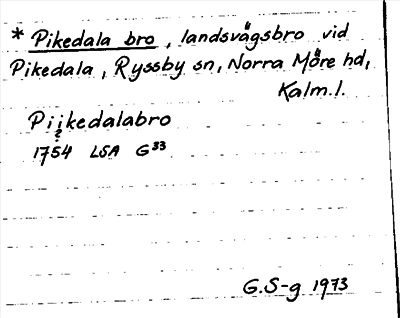 * Pikedala bro, landsvägsbro vid
Pikedala, Ryssby sn, Norra Möre hd,
Kalm. l.
Piikedalabro
?
1754 LSA G33
G.S-g 1973